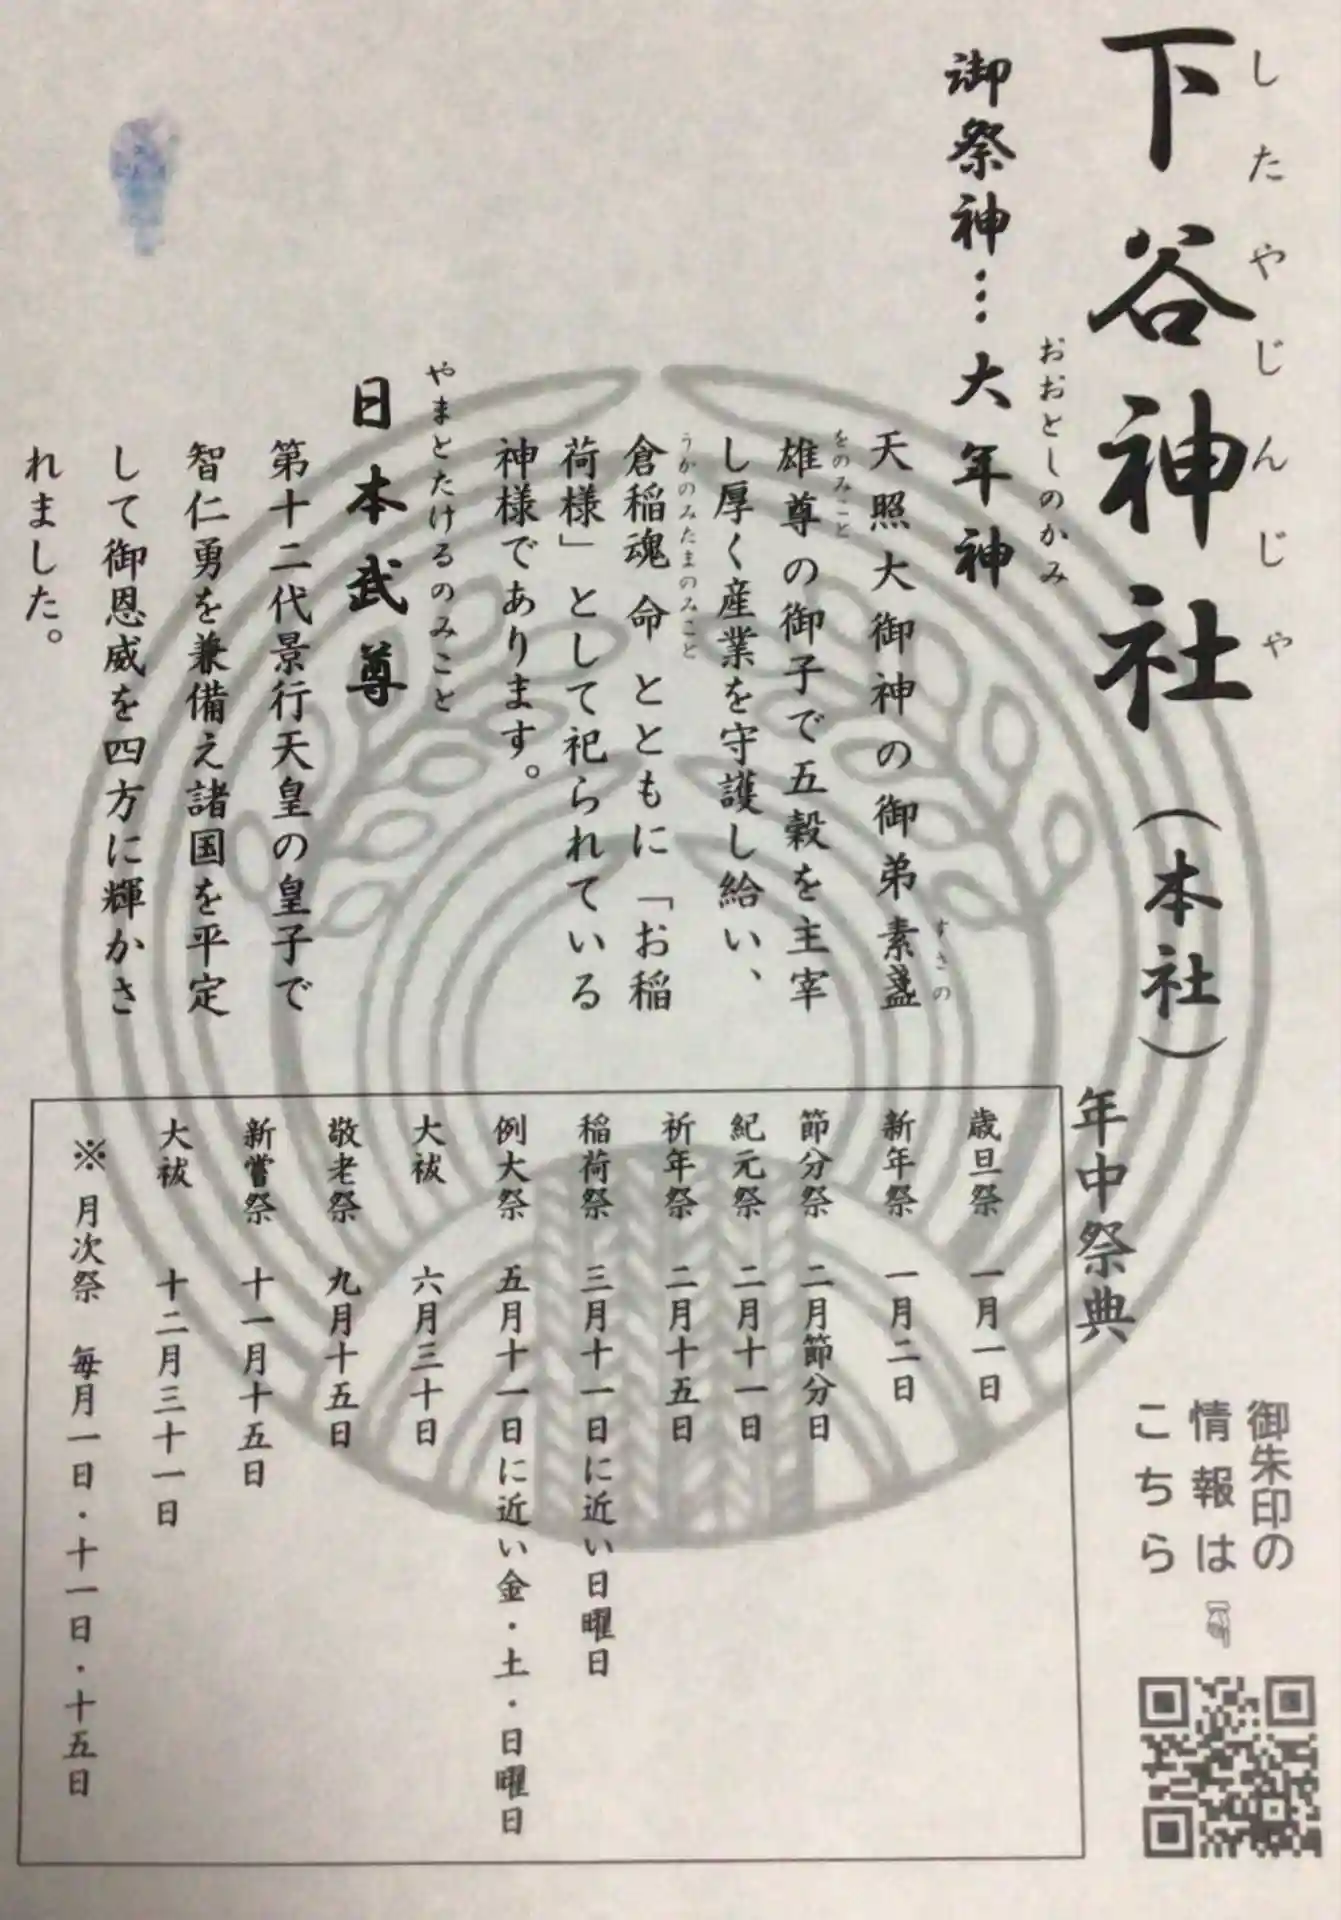 下谷神社（本社）
したやじんじゃ
御祭神…大年神
おおとしのかみ
天照大御神の御弟素盞
すさの
雄尊の御子で五穀を主宰
をのみこと
し厚く産業を守護し給い、
倉稲魂命とともに「お稲
うかのみたまのみこと
荷様」として祀られている
神様であります。
日本武尊
やまとたけるのみこと
第十二代景行天皇の皇子で
智仁勇を兼備え諸国を平定
して御恩威を四方に輝かさ
れました。
年中祭典
歳旦祭 一月一日
新年祭 一月二日
節分祭 二月節分日
紀元祭 二月十一日
祈年祭 二月十五日
稲荷祭 三月十一日に近い日曜日
例大祭 五月十一日に近い金・土・日曜日
大祓 六月三十日
敬老祭 九月十五日
新嘗祭 十一月十五日
大祓 十二月三十一日
※月次祭 毎月一日・十一日・十五日
御朱印の
情報は
こちら